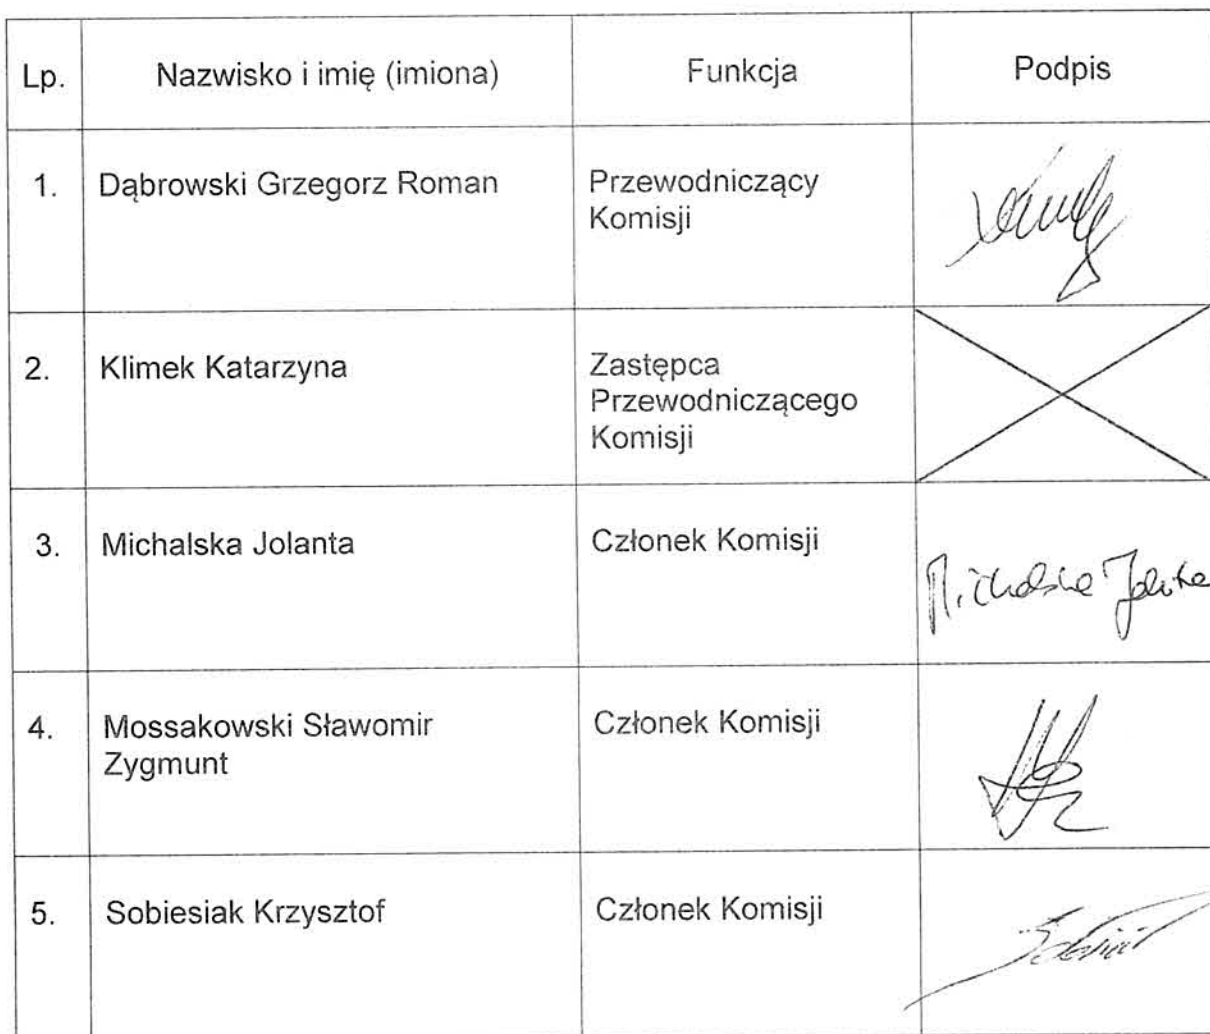 Lp. Nazwisko i imię (imiona) Funkcja Podpis
1. Dąbrowski Grzegorz Roman Przewodniczący
Komisji
2. Klimek Katarzyna Zastępca
Przewodniczącego
Komisji
3. Michalska Jolanta Członek Komisji
Michalska Jolanta
4. Mossakowski Sławomir Członek Komisji
Zygmunt
5. Sobiesiak Krzysztof Członek Komisji